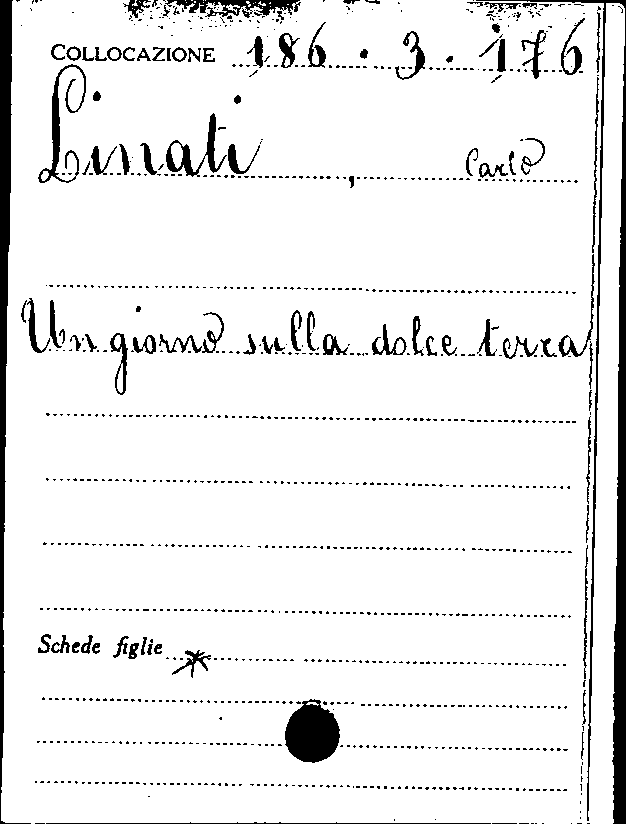 COLLOCAZIONE 186.3.176
Linati, Carlo
Un giorno sulla dolce terra
Schede figlie *